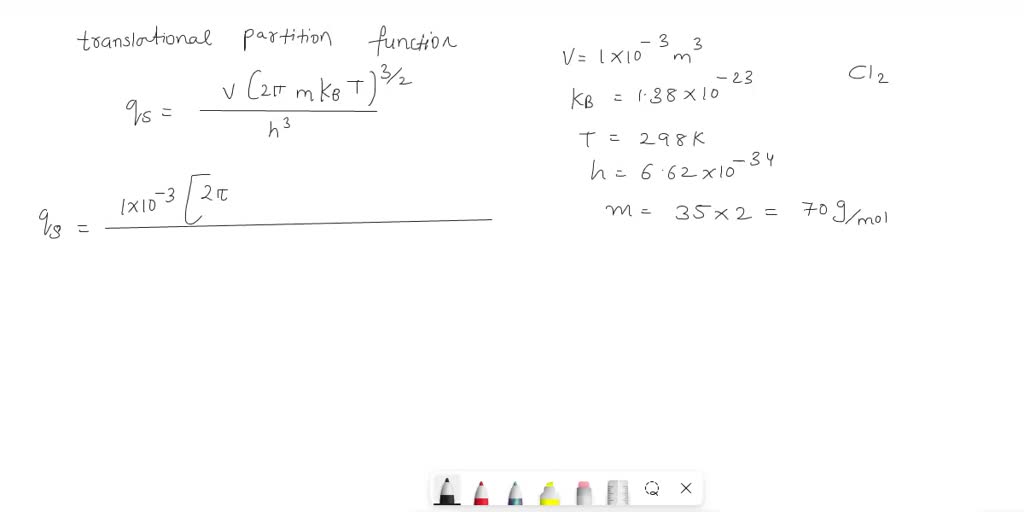 translational partition function
qs = V (2π m kB T)^3/2 / h^3
qs = 1×10^-3 [2π
V = 1×10^-3 m^3
kB = 1.38×10^-23
T = 298K
h = 6.62×10^-34
m = 35×2 = 70g/mol
Cl2